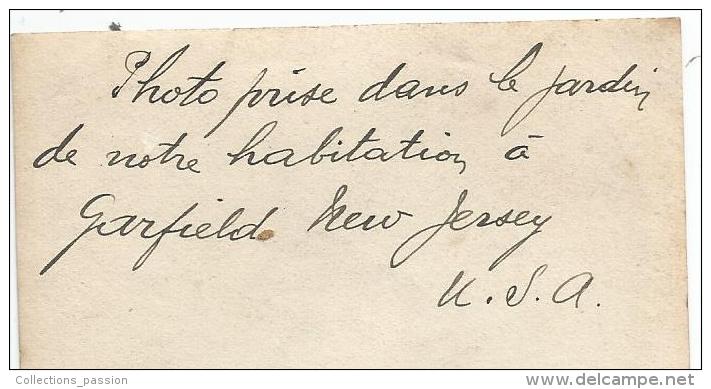 Photo prise dans le jardin
de notre habitation à
Garfield New Jersey
U.S.A.
Collections_passion
delcampe.net